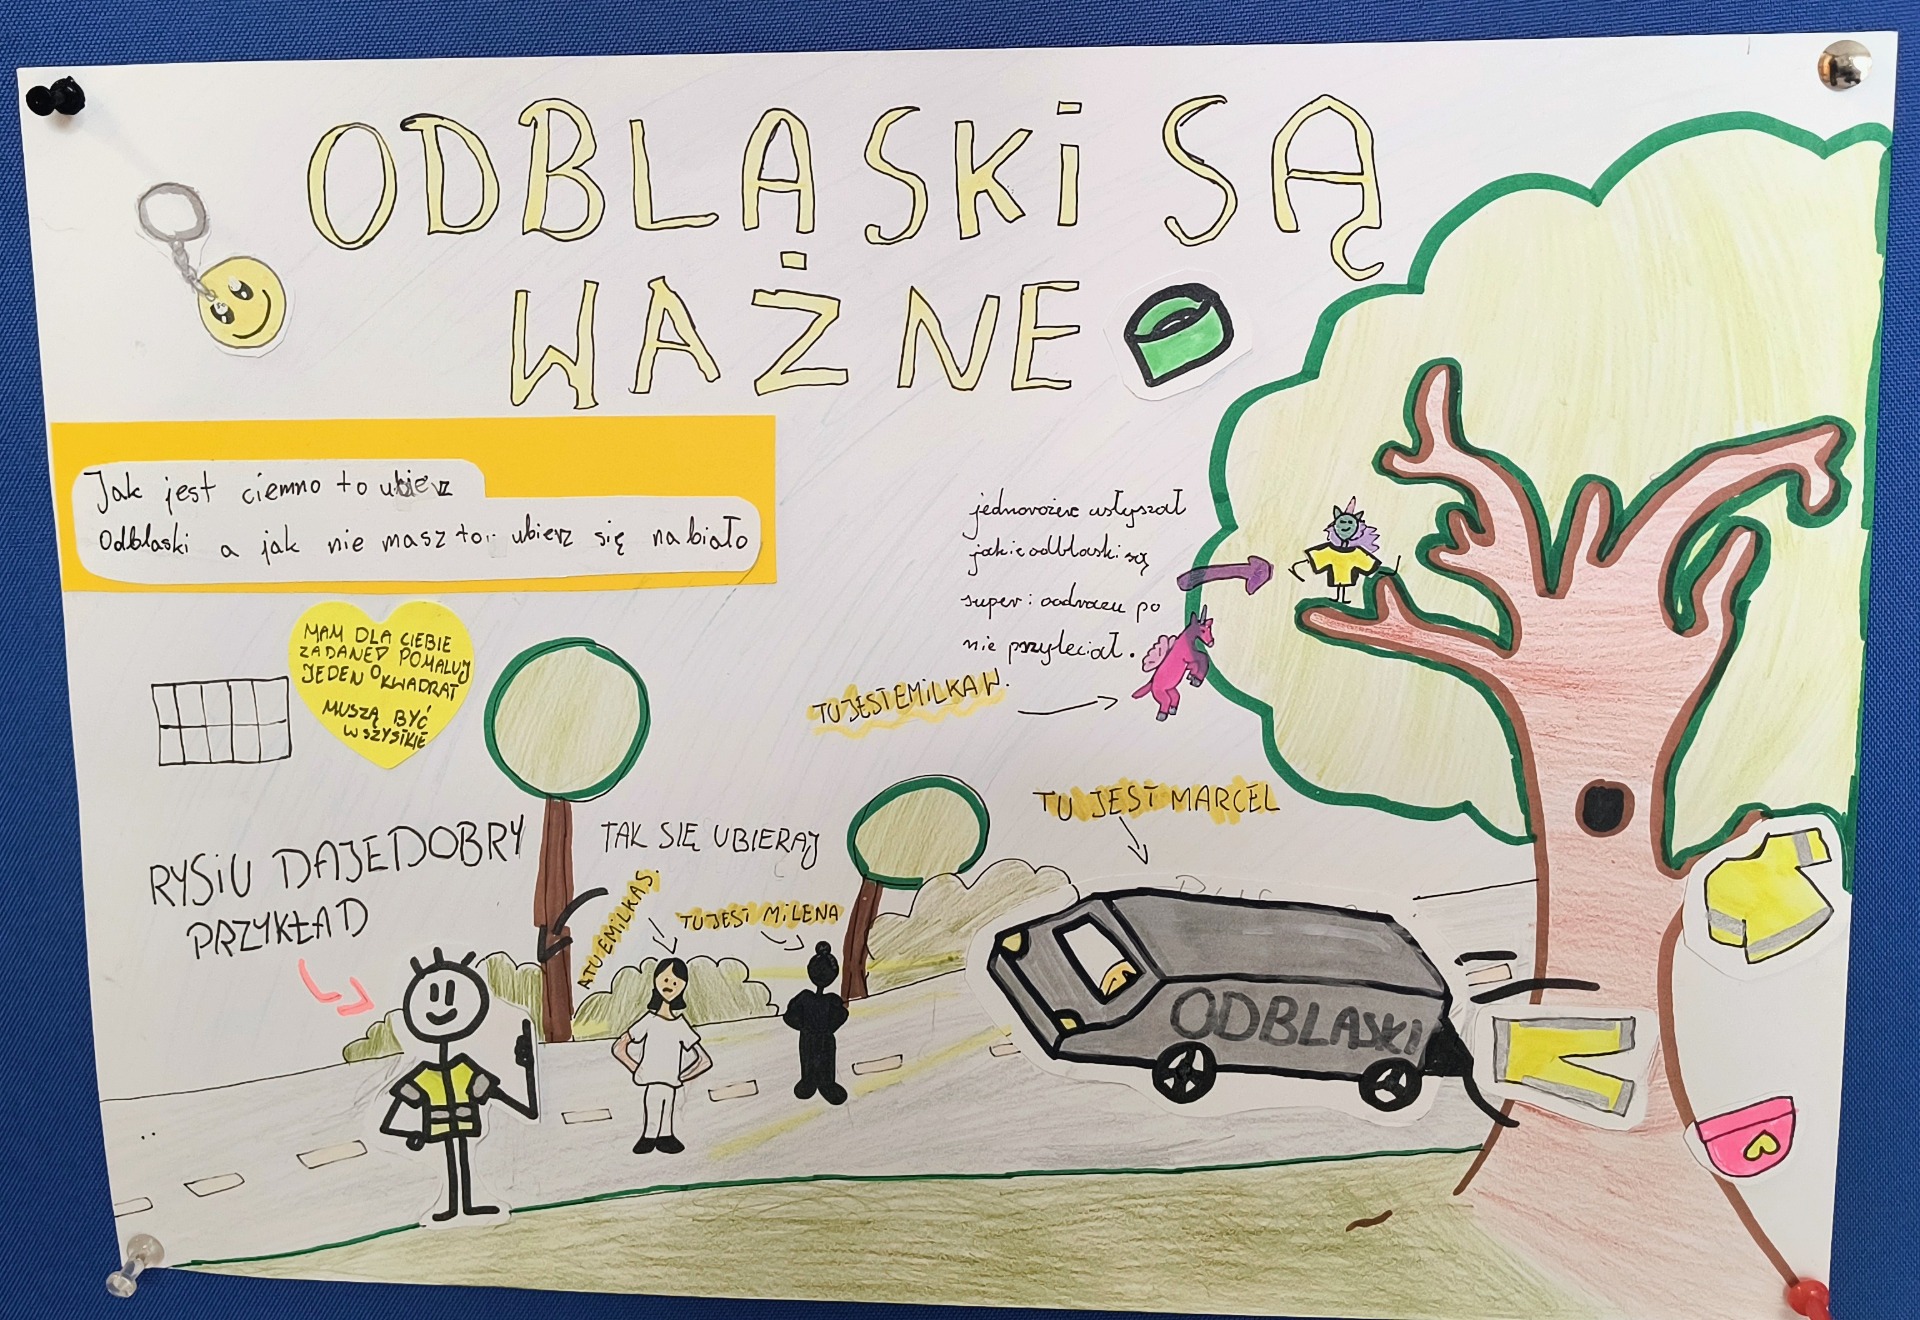 ODBLASKi SĄ
WAŻNE
Jak jest ciemno to ubierz
Odblaski a jak nie masz to ubierz się na biało
jednorożec usłyszał
jakie odblaski są
super i oodrazu po
nie przyleciał.
MAM DLA CIEBIE
ZADANE POMALUJ
JEDEN KWADRAT
MUSZĄ BYĆ
WSZYSTKIE
TU JEST EMILKA W.
TU JEST MARCEL
RYSiU DAJE DOBRY
PRZYKŁAD
TAK SIĘ UBIERAJ
A TU EMILKA S.
TU JEST MiLENA
ODBLASKi